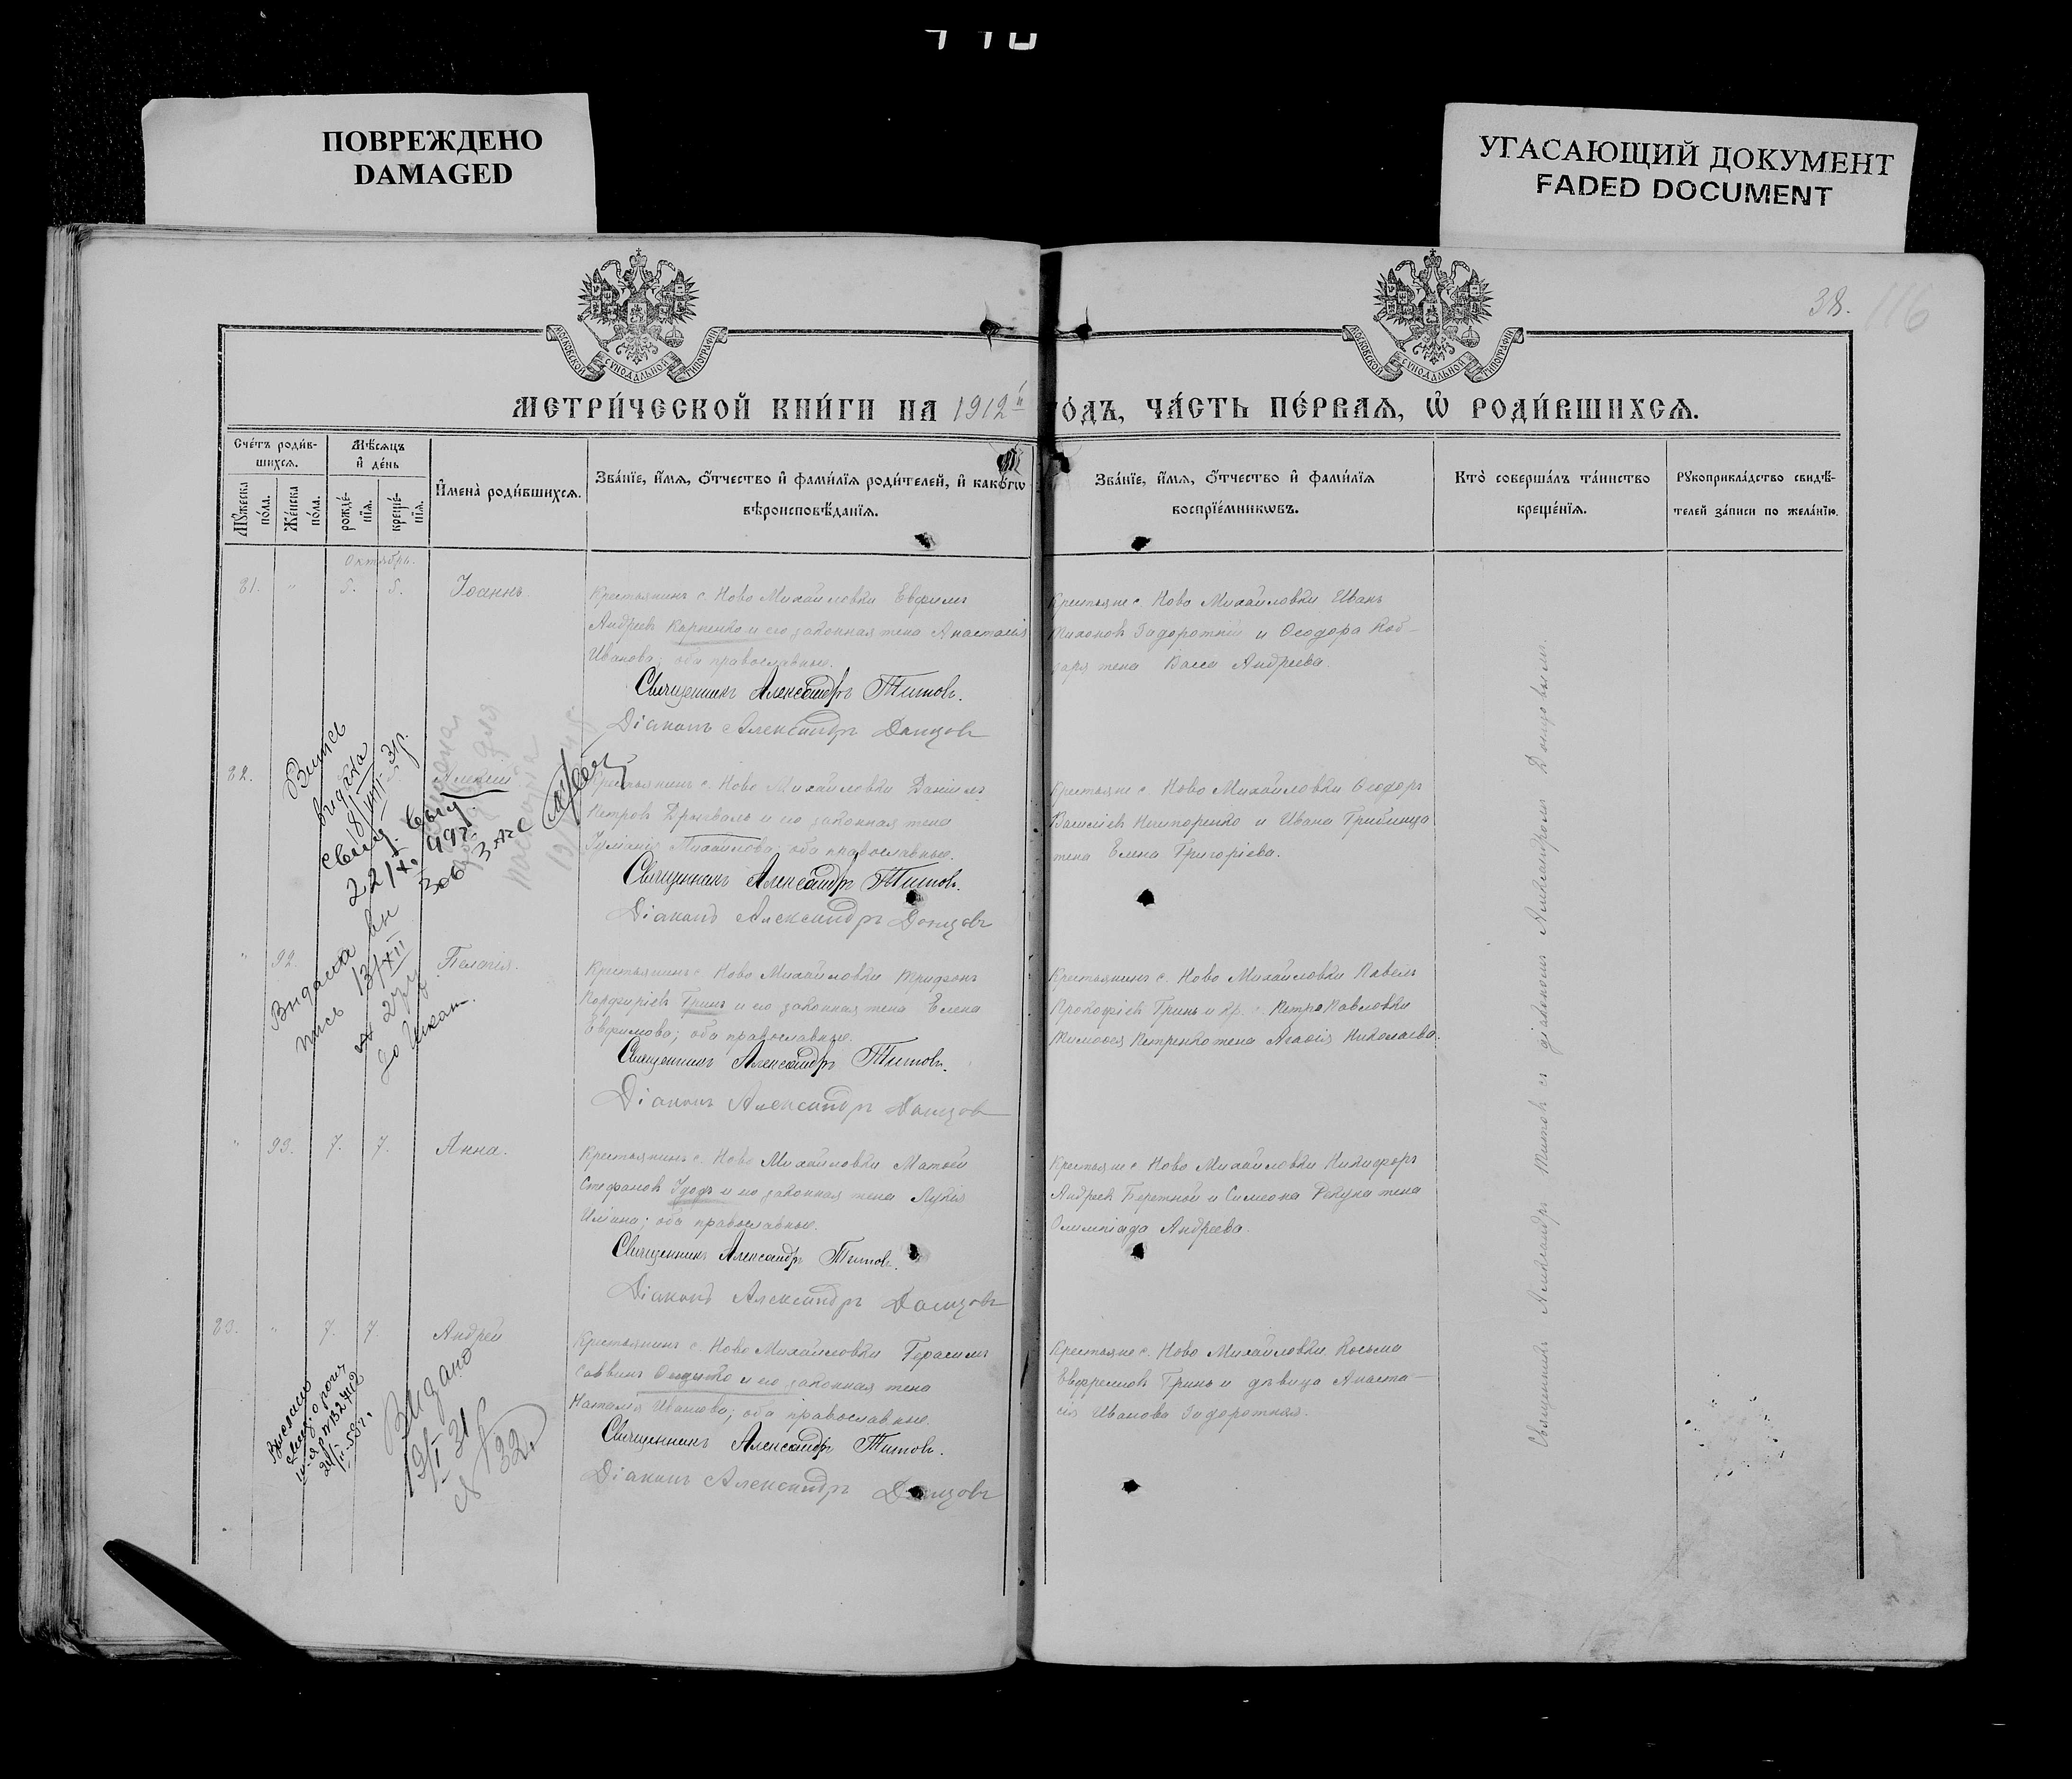 ПОВРЕЖДЕНО
DAMAGED
УГАСАЮЩИЙ ДОКУМЕНТ
FADED DOCUMENT
38.
116
МОСКОВСКОЙ СУНОДАЛЬНОЙ ТИПОГРАФІИ
МОСКОВСКОЙ СУНОДАЛЬНОЙ ТИПОГРАФІИ
МЕТРИ́ЧЕСКОЙ КНИ́ГИ НА 1912й
О́ДЪ, ЧА́СТЬ ПЕ́РВАѦ, Ѡ҆ РОДИ́ВШИХСѦ.
Сче́тъ роди́в-
шихсѧ.
Мꙋ́жеска по́ла.
Же́нска по́ла.
Мѣ́сѧцъ
и҆ де́нь
рожде́-нїѧ.
креще́-нїѧ.
И҆мена̀ роди́вшихсѧ.
Зва́нїе, и҆́мѧ, ѻ҆́тчество и҆ фами́лїѧ роди́телей, и҆ како́гѡ
вѣроисповѣ́данїѧ.
Зва́нїе, и҆́мѧ, ѻ҆́тчество и҆ фами́лїѧ
воспрїе́мникѡвъ.
Кто̀ соверша́лъ та́инство
креще́нїѧ.
Рꙋкоприкла́дство свидѣ́-
телей за́писи по жела́нїю.
Октябрь.
81. " 5. 5. Іоаннъ.
Крестьянинъ с. Ново Михайловки Евфимъ
Андреевъ Карпенко и его законная жена Анастасія
Иванова; оба православные.
Священникъ Александръ Титовъ.
Діаконъ Александръ Донцовъ
Крестьяне с. Ново Михайловки Иванъ
Тихоновъ Задорожній и Ѳеодора Коб-
заря жена Васса Андреева.
82.
Алексій
Крестьянинъ с. Ново Михайловки Даніилъ
Петровъ Дрываль и его законная жена
Іуліанія Михайлова; оба православные.
Священникъ Александръ Титовъ.
Діаконъ Александръ Донцовъ
Крестьяне с. Ново Михайловки Ѳеодоръ
Василіевъ Нешторенко и Ивана
жена Елена Григоріева.
Випись
видана
18/VIII 31р.
" 92.
Пелагія.
Крестьянинъ с. Ново Михайловки Трифонъ
Порфиріевъ Гринь и его законная жена Елена
Евфимова; оба православные.
Священникъ Александръ Титовъ.
Діаконъ Александръ Донцовъ
Крестьянинъ с. Ново Михайловки Павелъ
Прокофіевъ Гринь и кр. с. Петро Павловки
Тимоѳея Петренко жена Агаѳія Николаева.
Видана ви
пись 13/XII
27р.
" 93. 7. 7. Анна.
Крестьянинъ с. Ново Михайловки Матѳей
Стефановъ Удодъ и его законная жена Лукія
Ильина; оба православные.
Священникъ Александръ Титовъ.
Діаконъ Александръ Донцовъ
Крестьяне с. Ново Михайловки Никифоръ
Андреевъ Бережной и Симеона Рекуна жена
Олимпіада Андреева.
83. " 7. 7. Андрей
Крестьянинъ с. Ново Михайловки Герасимъ
Саввинъ и его законная жена
Наталія Иванова; оба православные.
Священникъ Александръ Титовъ.
Діаконъ Александръ Донцовъ
Крестьяне с. Ново Михайловки Косьма
Евфремовъ Гринь и дѣвица Анаста-
сія Иванова Задорожная.
Видано
19/I 31
Священникъ Александръ Титовъ съ діакономъ Александромъ Донцовымъ.